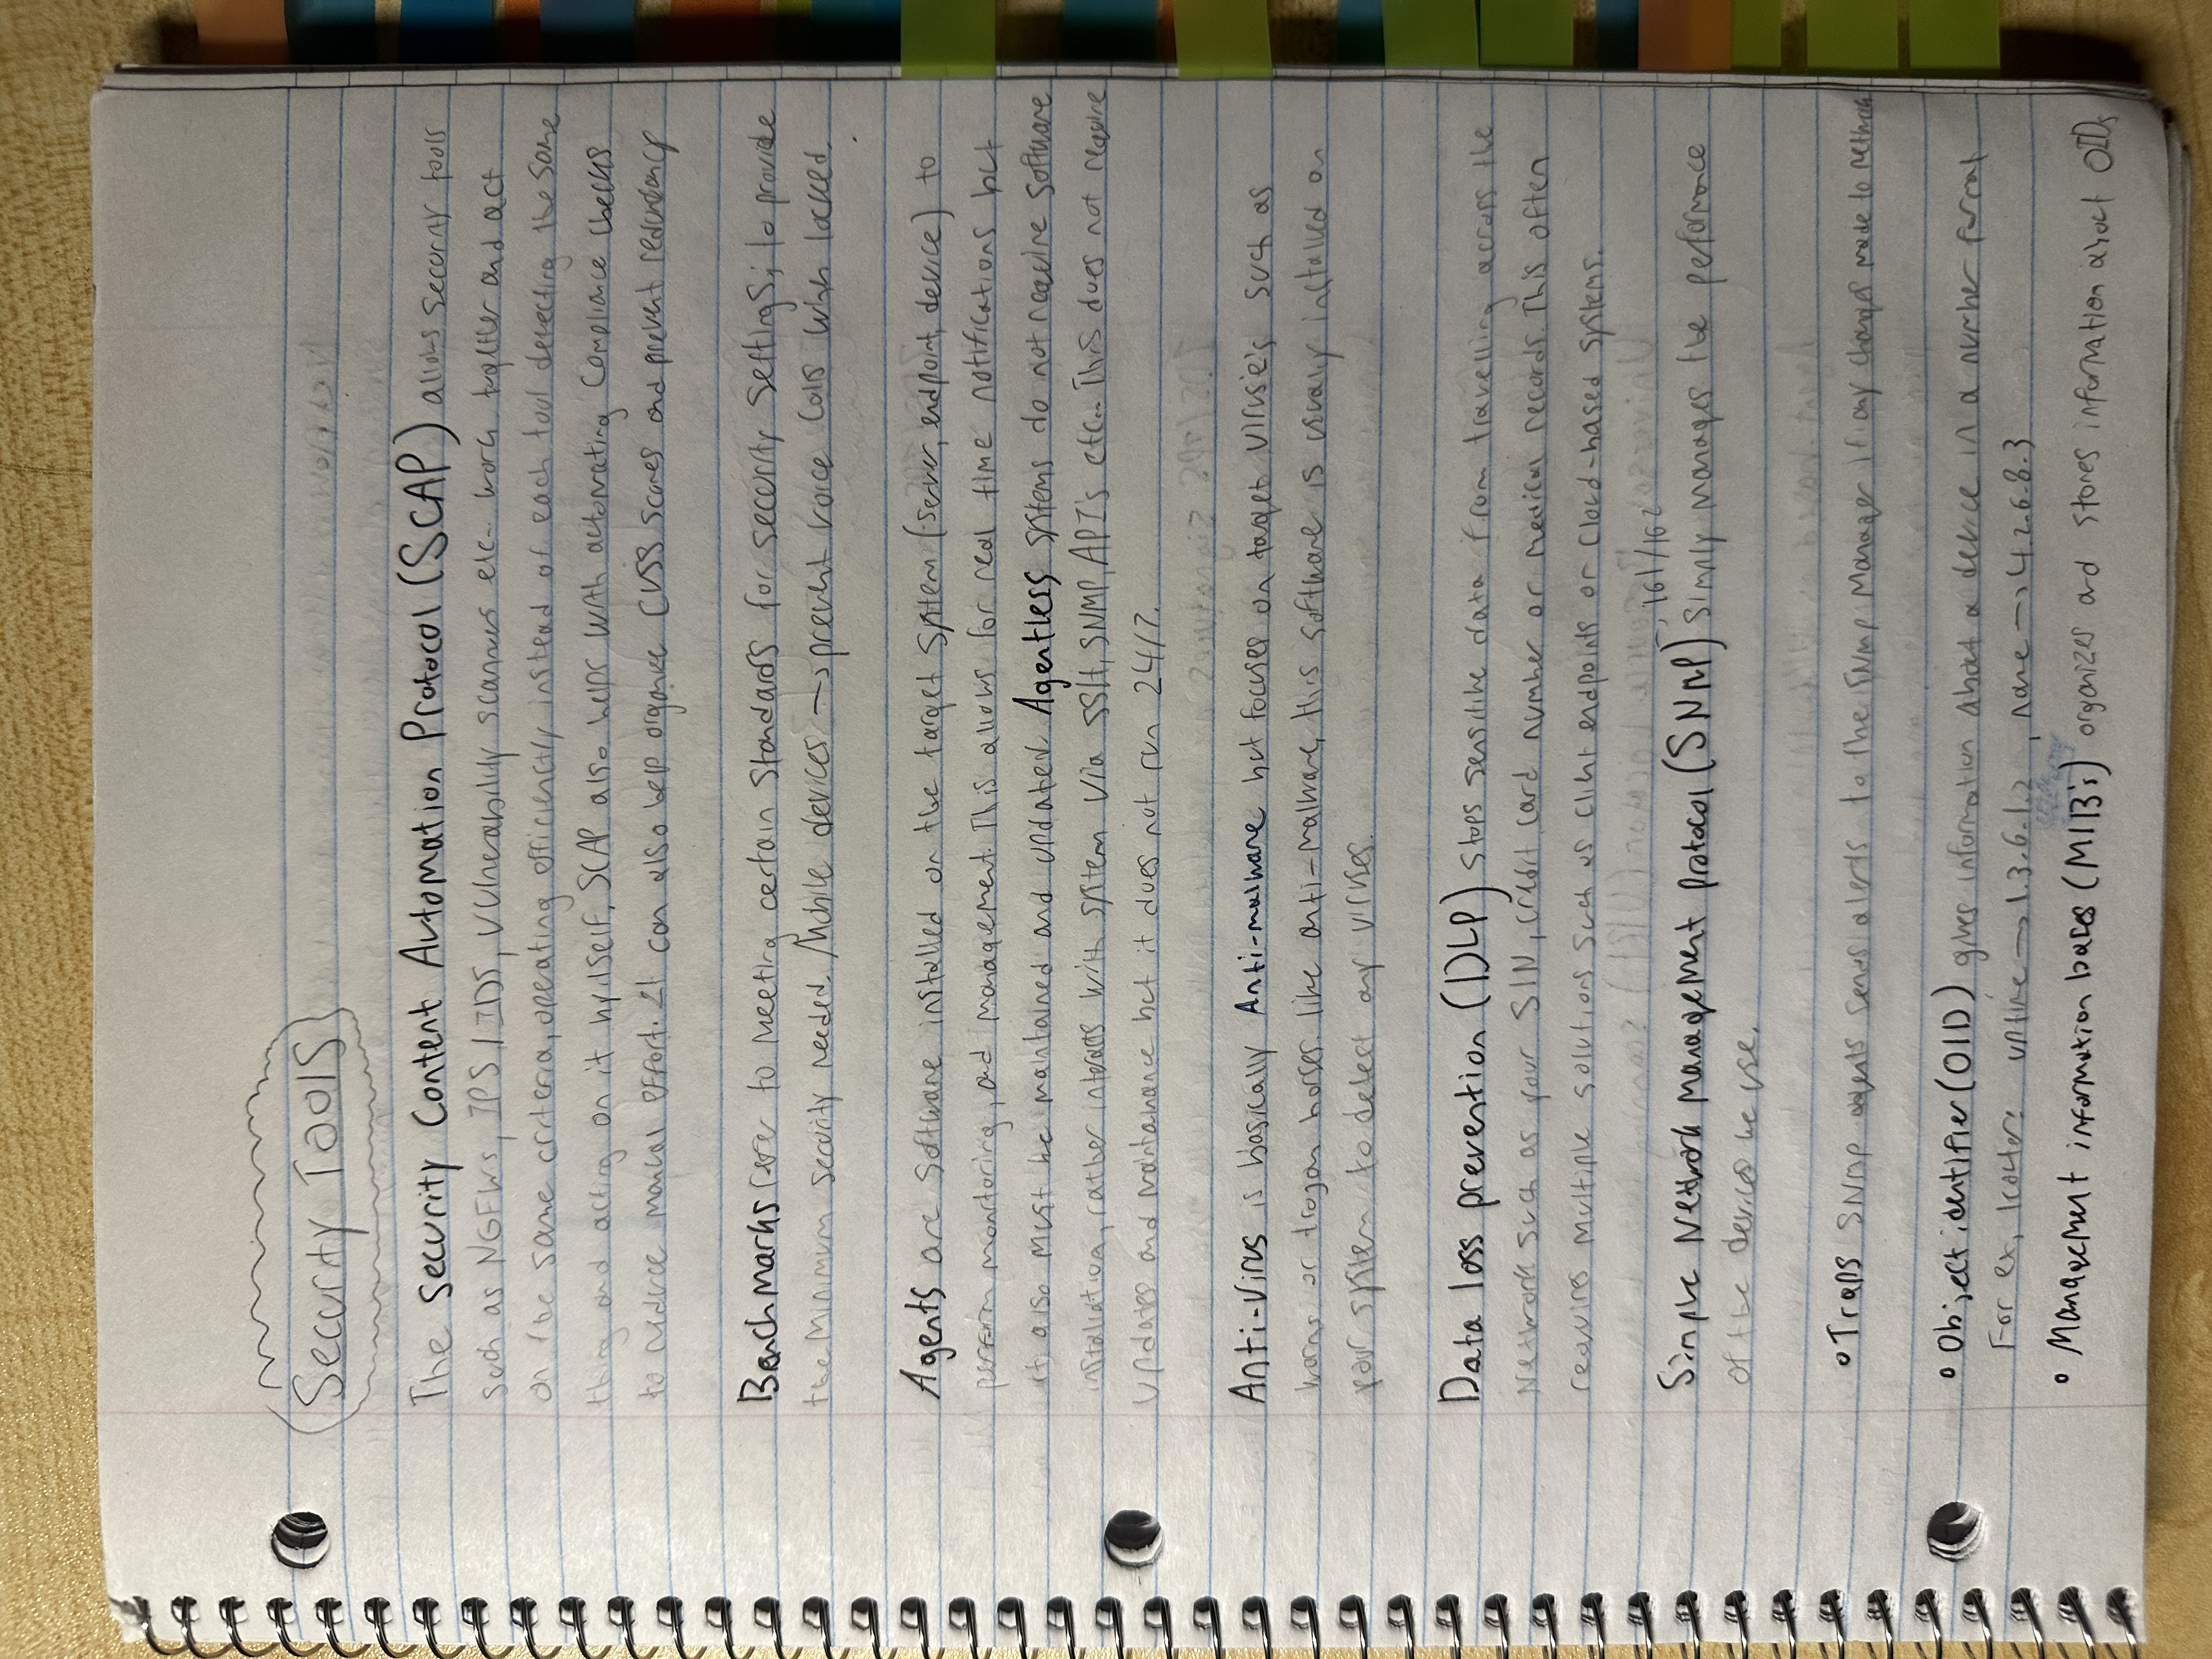 Security Tools
The Security Content Automation Protocol (SCAP) allows security tools
such as NGFWs, IPS/IDS, vulnerability scanners etc.. work together and act
on the same criteria, operating efficienctly instead of each tool detecting the same
thing and acting on it by itself. SCAP also helps with automating compliance checks
to reduce manual effort. It can also help organize CVSS scores and prevent redundancy
Benchmarks refer to meeting certain standards for security settings; to provide
the minimum security needed. Mobile devices → prevent voice calls when locked.
Agents are software installed on the target system (server, endpoint, device) to
perform monitoring, and management. This allows for real time notifications but
it also must be maintained and updated. Agentless systems do not require software
installation, rather interacts with system via SSH, SNMP, API's etc... This does not require
updates and maintanance but it does not run 24/7.
Anti-Virus is basically Anti-malware but focuses on target viruse's such as
worms or trojan horses. like anti-malware, this software is usually installed on
your system to detect any viruses.
Data loss prevention (DLP) stops sensitive data from travelling across the
Network such as your SIN, credit card number or medical records. This often
requires multiple solutions such as client endpoints or cloud-based systems.
Simple Network Management Protocol (SNMP), 161/162 simply manages the performance
of the devices we use.
• Traps SNMP agents sends alerts to the SNMP Manager if any changes made to network
• Object identifier (OID) gives information about a device in a number format
For ex, router: uptime → 1.3.6.1.2, name → 4.2.6.8.3
• Management information bases (MIB's) organizes and stores information about OIDs